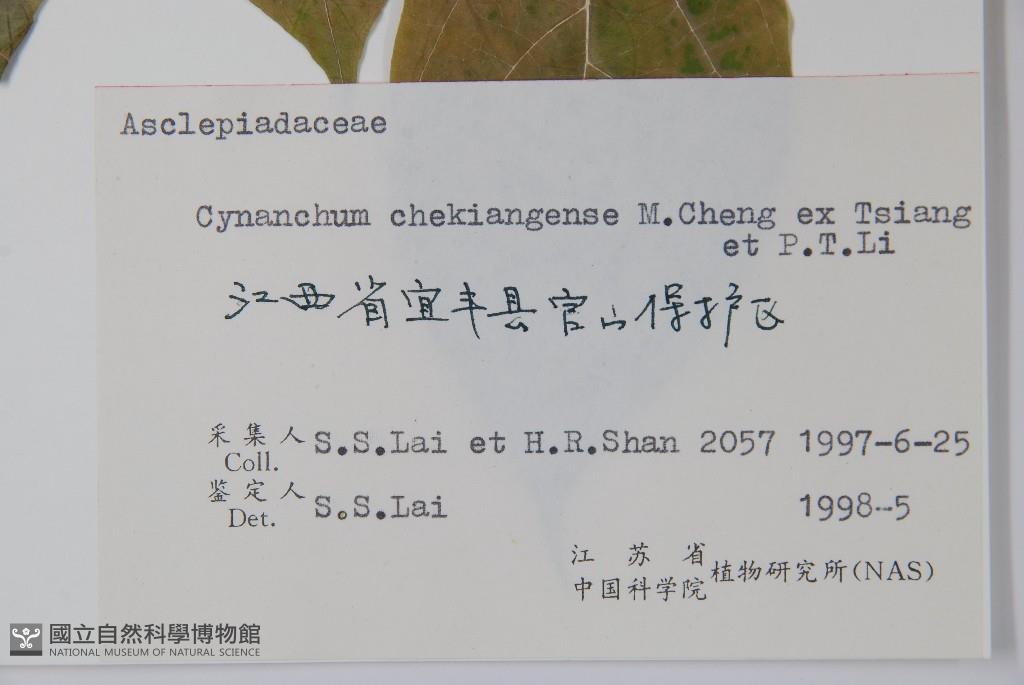 Asclepiadaceae
Cynanchum chekiangense M.Cheng ex Tsiang
et P.T.Li
江西省宜丰县官山保护区
采集人 S.S.Lai et H.R.Shan 2057 1997-6-25
Coll.
鉴定人 S.S.Lai 1998-5
Det.
江苏省
中国科学院 植物研究所(NAS)
國立自然科學博物館
NATIONAL MUSEUM OF NATURAL SCIENCE